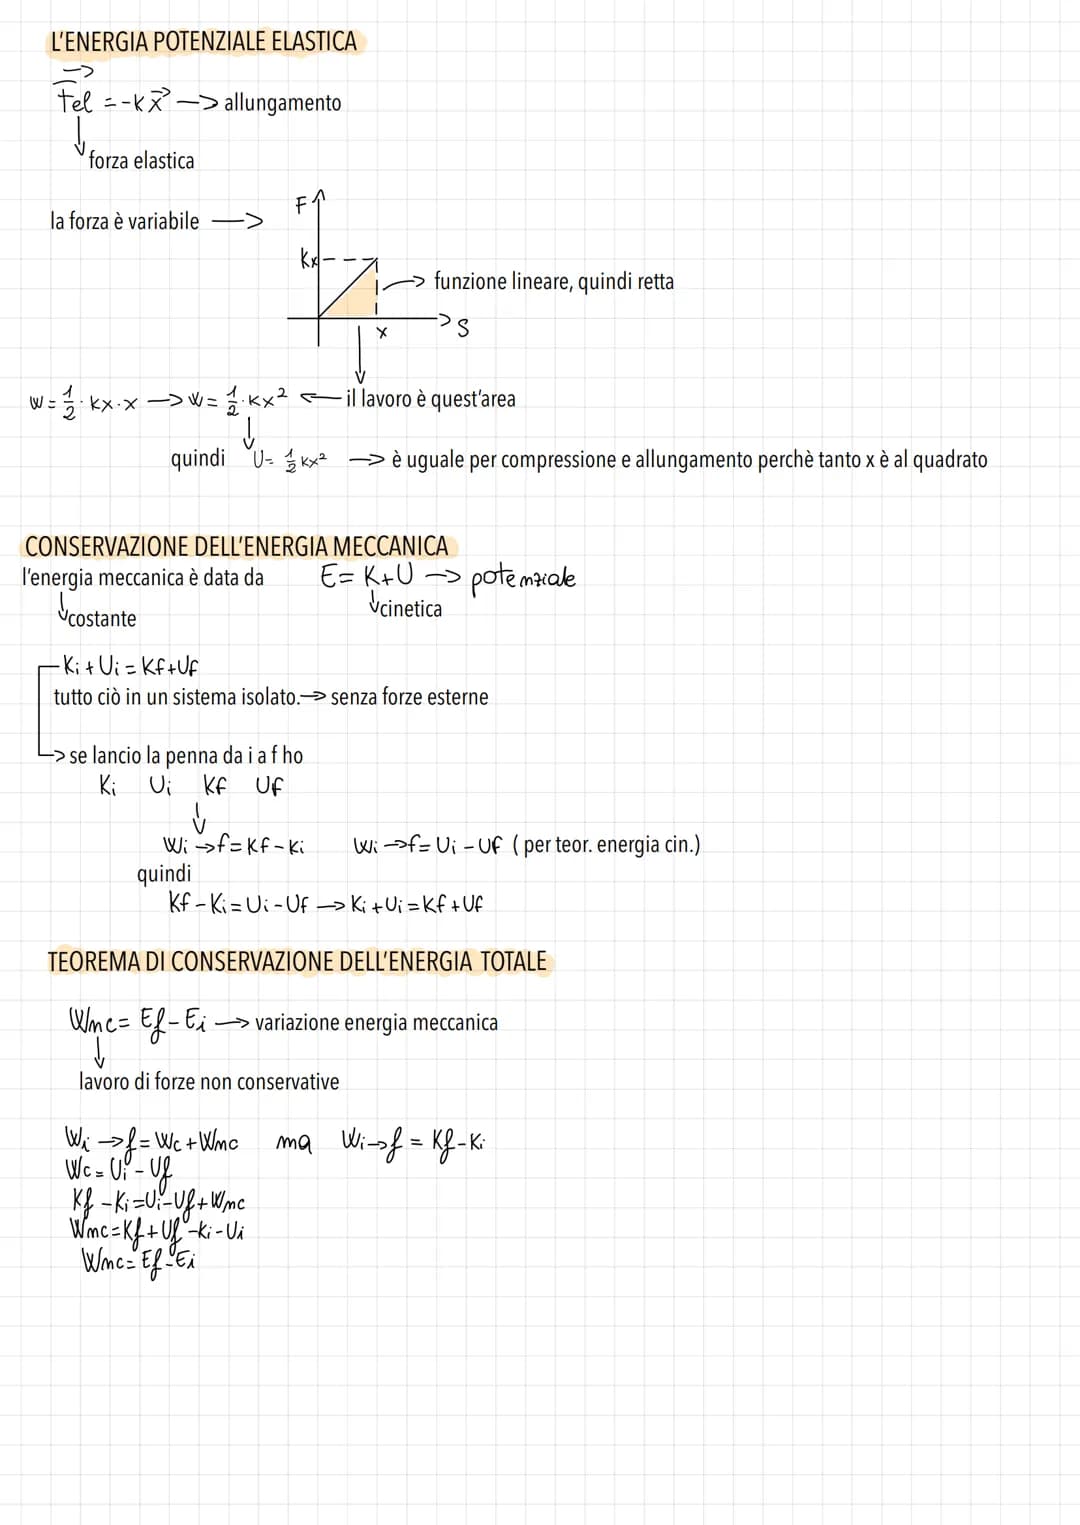 L'ENERGIA POTENZIALE ELASTICA
Fel = -Kx → allungamento
forza elastica
la forza è variabile →
F
Kx
→ funzione lineare, quindi retta
x
S
W = 1/2 · Kx·x → W = 1/2 · Kx² ← il lavoro è quest'area
quindi U = 1/2 Kx² → è uguale per compressione e allungamento perchè tanto x è al quadrato
CONSERVAZIONE DELL'ENERGIA MECCANICA
l'energia meccanica è data da E = K+U → potenziale
costante
cinetica
Ki + Ui = Kf+Uf
tutto ciò in un sistema isolato.→ senza forze esterne
→ se lancio la penna da i a f ho
Ki Ui Kf Uf
Wi→f = Kf - Ki Wi→f = Ui - Uf ( per teor. energia cin.)
quindi
Kf - Ki = Ui - Uf → Ki + Ui = Kf + Uf
TEOREMA DI CONSERVAZIONE DELL'ENERGIA TOTALE
Wnc = Ef - Ei → variazione energia meccanica
lavoro di forze non conservative
Wi→f = Wc + Wnc ma Wi→f = Kf - Ki
Wc = Ui - Uf
Kf - Ki = Ui - Uf + Wnc
Wnc = Kf + Uf - Ki - Ui
Wnc = Ef - Ei